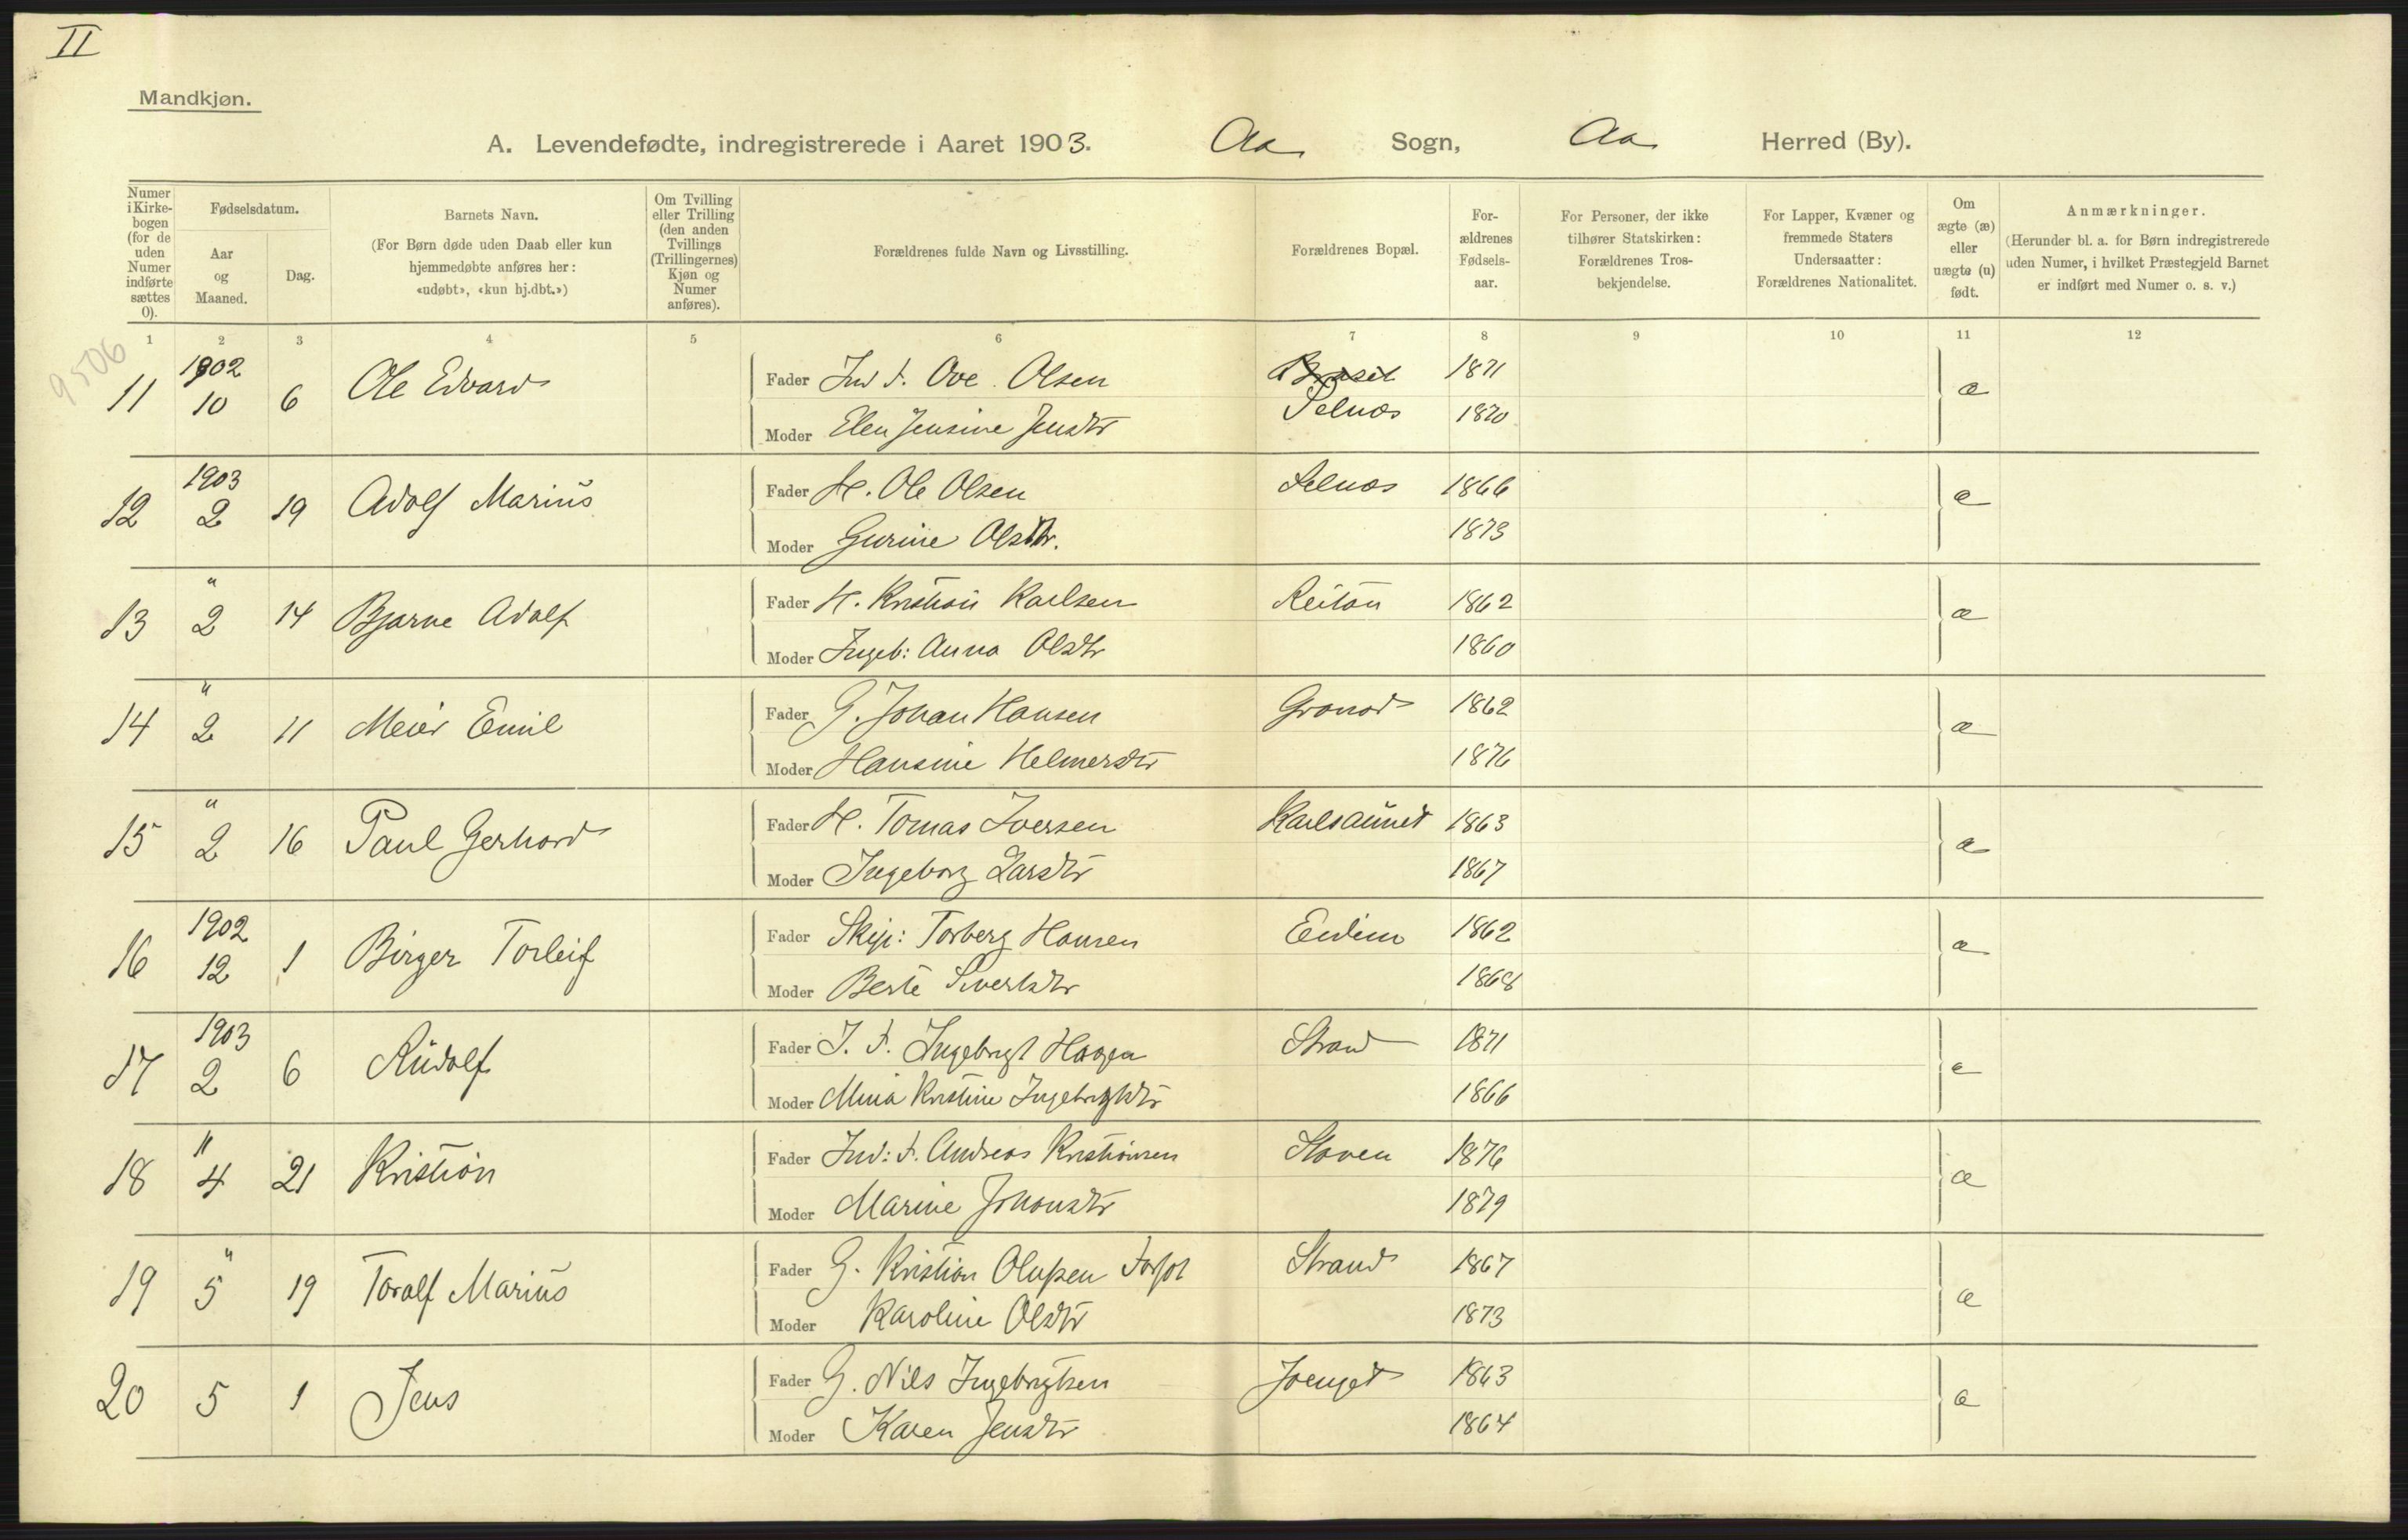 II
Mandkjøn.
A. Levendefødte, indregistrerede i Aaret 1903. Aa Sogn, Aa Herred (By).
Numer i Kirkebogen (for de uden Numer indførte sættes 0).
Fødselsdatum.
Aar og Maaned.
Dag.
Barnets Navn.
(For Børn døde uden Daab eller kun hjemmedøbte anføres her: «udøbt», «kun hj.dbt.»)
Om Tvilling eller Trilling (den anden Tvillings (Trillingernes) Kjøn og Numer anføres).
Forældrenes fulde Navn og Livsstilling.
Forældrenes Bopæl.
Forældrenes Fødselsaar.
For Personer, der ikke tilhører Statskirken: Forældrenes Trosbekjendelse.
For Lapper, Kvæner og fremmede Staters Undersaatter: Forældrenes Nationalitet.
Om ægte (æ) eller uægte (u) født.
Anmærkninger.
(Herunder bl. a. for Børn indregistrerede uden Numer, i hvilket Præstegjeld Barnet er indført med Numer o. s. v.)
1 2 3 4 5 6 7 8 9 10 11 12
9506
11 1902 10 6 Ole Edvard Fader Ind F. Ove Olsen 1871 æ
Moder Elen Jensine Jensdtr Selnæs 1870
12 1903 2 19 Adolf Marius Fader H. Ole Olsen Selnæs 1866 æ
Moder Gurine Olsdtr. 1873
13 " 2 14 Bjarne Adolf Fader H. Kristian Karlsen Reitan 1862 æ
Moder Ingeb: Anna Olsdtr 1860
14 " 2 11 Meier Emil Fader G. Johan Hansen 1862 æ
Moder Hansine Helmersdtr 1876
15 " 2 16 Paul Gerhard Fader H. Tomas Iversen Karlsaunet 1863 æ
Moder Ingeborg Larsdtr 1867
16 1902 12 1 Birger Torleif Fader Skip: Torberg Hansen 1862 æ
Moder Berte Sivertsdtr 1868
17 1903 2 6 Rudolf Fader I. F. Ingebrigt Hagen Strand 1871 æ
Moder Mina Kristine Ingebrigtsdtr 1866
18 " 4 21 Kristian Fader Ind: F. Andreas Kristiansen Staven 1876 æ
Moder Marine Johansdtr 1879
19 " 5 19 Toralf Marius Fader G. Kristian Olufsen Strand 1867 æ
Moder Karoline Olsdtr 1873
20 5 1 Jens Fader G. Nils Ingebrigtsen 1863 æ
Moder Karen Jensdtr 1864